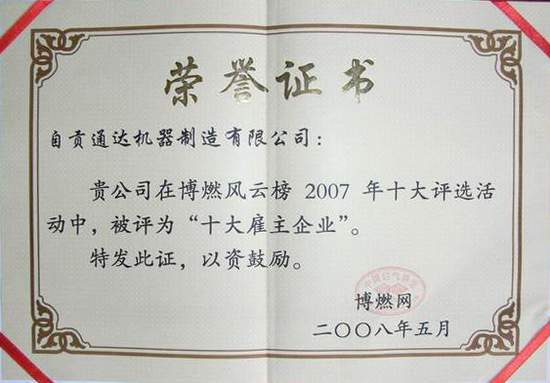 荣誉证书
自贡通达机器制造有限公司：
贵公司在博燃风云榜 2007 年十大评选活
动中，被评为“十大雇主企业”。
特发此证，以资鼓励。
博燃网
二〇〇八年五月